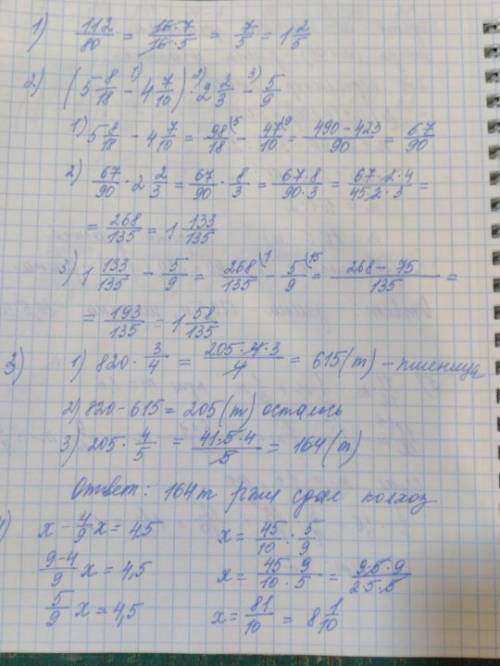 1) 112/80 = 16·7/16·5 = 7/5 = 1 2/5
2) (5 8/18 - 4 7/10) · 2 2/3 - 5/9
1) 5 8/18 - 4 7/10 = 98/18 - 47/10 = 490-423/90 = 67/90
2) 67/90 · 2 2/3 = 67/90 · 8/3 = 67·8/90·3 = 67·2·4/45·2·3 =
= 268/135 = 1 133/135
3) 1 133/135 - 5/9 = 268/135 - 5/9 = 268-75/135 =
= 193/135 = 1 58/135
3) 1) 820 · 3/4 = 205·4·3/4 = 615(т) - пшеницы
2) 820-615 = 205(т) осталось
3) 205 · 4/5 = 41·5·4/5 = 164(т)
Ответ: 164т ржи сдал колхоз
4) x - 4/9 x = 4,5 x = 45/10 : 5/9
9-4/9 x = 4,5 x = 45·9/10·5 = 9·5·9/2·5·5
5/9 x = 4,5 x = 81/10 = 8 1/10